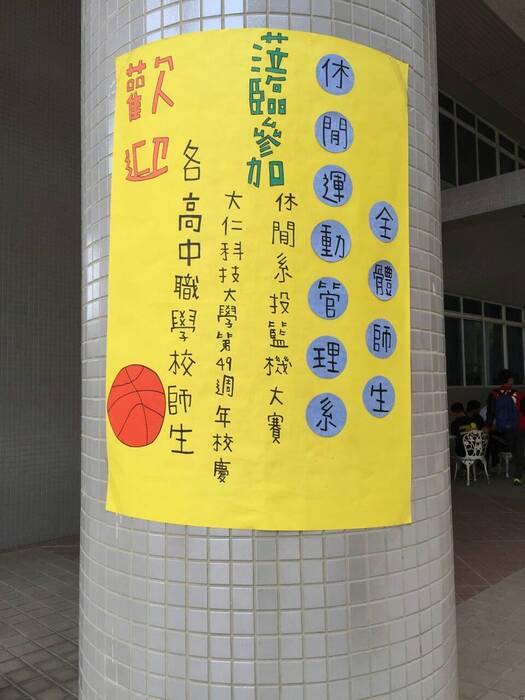 歡迎
各高中職學校師生
蒞臨參加
大仁科技大學第49週年校慶
休閒系投籃機大賽
休閒運動管理系
全體師生